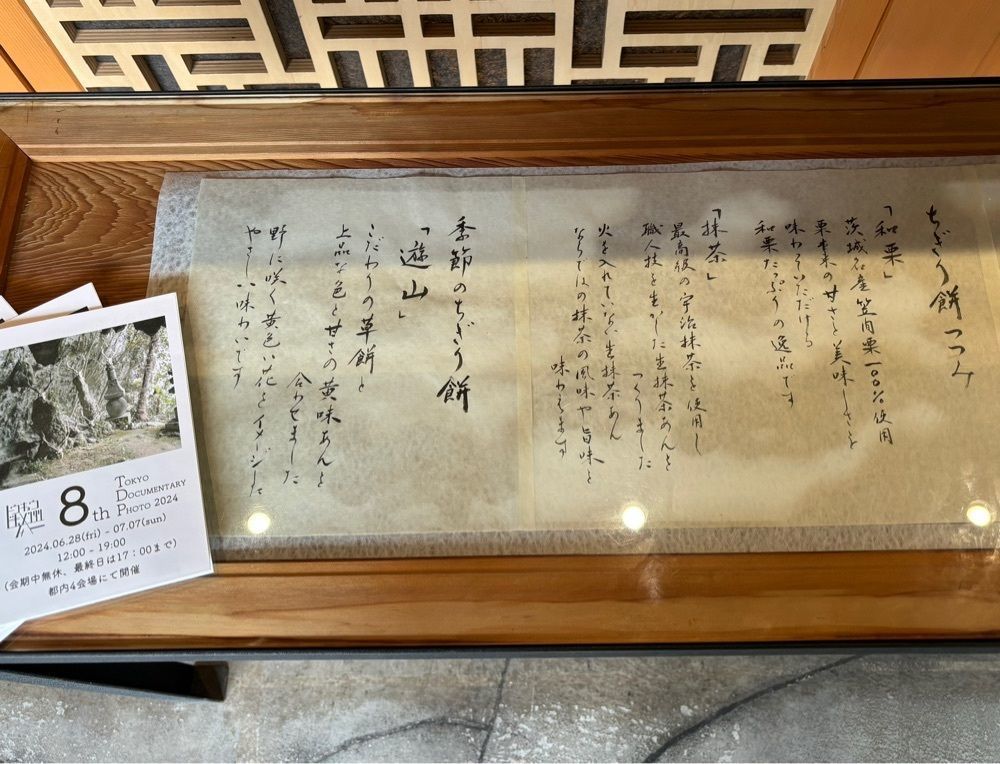 ちぎり餅つつみ
「和栗」
茨城名産笠間栗一〇〇%使用
栗本来の甘さと美味しさを
味わっていただける
和栗たっぷりの逸品です
「抹茶」
最高級の宇治抹茶を使用し
職人技を生かした生抹茶あんを
つくりました
火を入れていない生抹茶あん
ならではの抹茶の風味や旨味を
味わえます
季節のちぎり餅
「遊山」
こだわりの草餅と
上品な色と甘さの黄味あんを
合わせました
野に咲く黄色い花をイメージした
やさしい味わいです
8th
TOKYO
DOCUMENTARY
PHOTO 2024
2024.06.28(fri) - 07.07(sun)
12:00 - 19:00
(会期中無休、最終日は17:00まで)
都内4会場にて開催